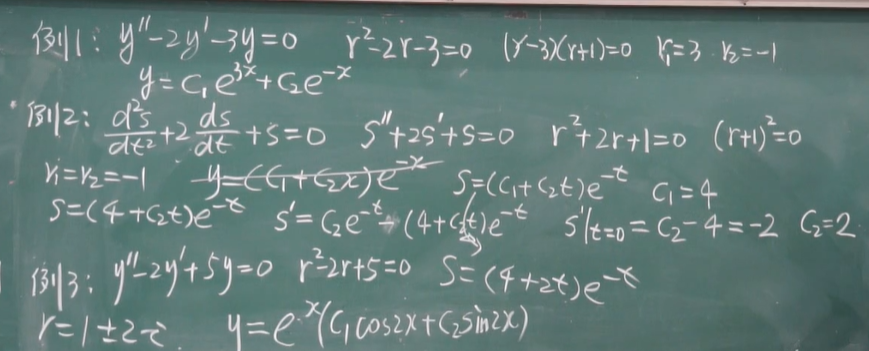 例1: y''-2y'-3y=0 r²-2r-3=0 (r-3)(r+1)=0 r₁=3 r₂=-1
y=C₁e^{3x}+C₂e^{-x}
例2: d²s/dt²+2ds/dt+s=0 S''+2S'+S=0 r²+2r+1=0 (r+1)²=0
r₁=r₂=-1 y=(C₁+C₂x)e^{-x} S=(C₁+C₂t)e^{-t} C₁=4
S=(4+C₂t)e^{-t} S'=C₂e^{-t}-(4+C₂t)e^{-t} S'|t=0=C₂-4=-2 C₂=2
例3: y''-2y'+5y=0 r²-2r+5=0 S=(4+2t)e^{-t}
r=1±2i y=e^x(C₁cos2x+C₂sin2x)